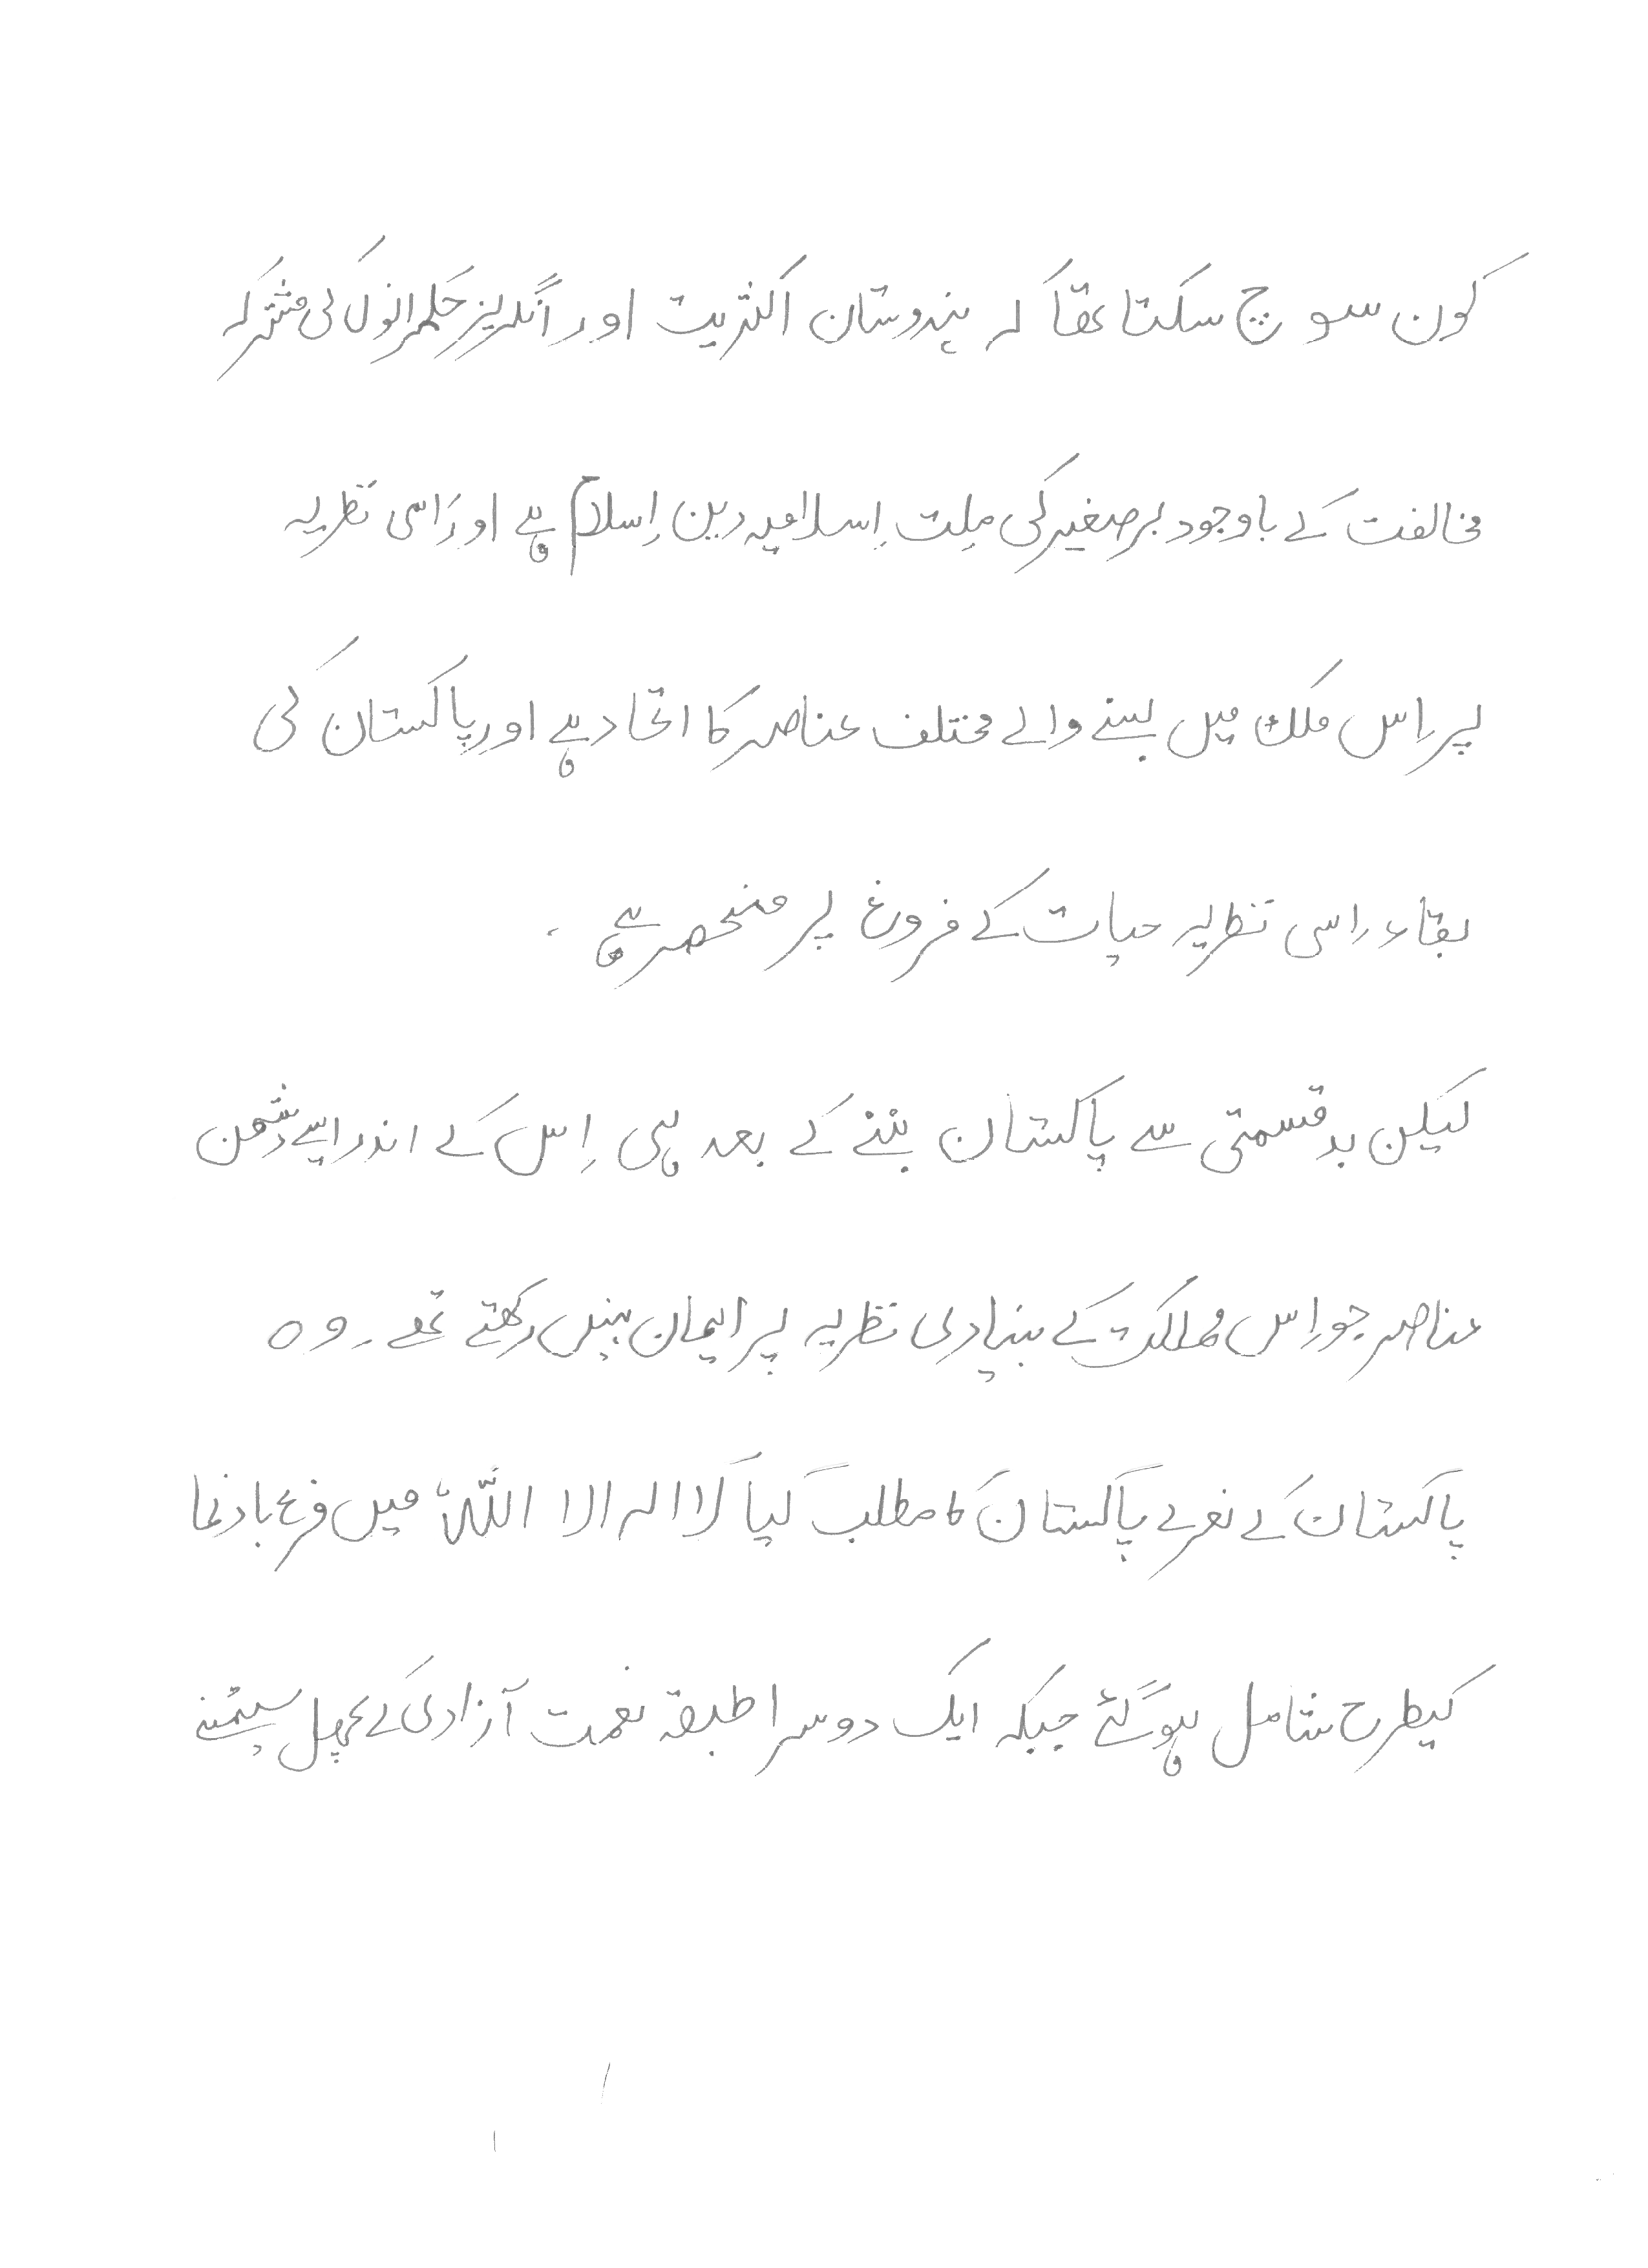 کون سوچ سکتا تھا کہ ہندوستان اکثریت اور انگریز حکمرانوں کی مشترکہ
مخالفت کے باوجود برصغیر کی مِلت اِسلامیہ دین اِسلام ہے اور اسی نظریہ
پر اِس ملک میں بسنے والے مختلف عناصر کا اتحاد ہے اور پاکستان کی
بقاء اسی نظریہ حیات کے فروغ پر منحصر ہے ۔
لیکن بدقسمتی سے پاکستان بننے کے بعد ہی اِس کے اندر ایسے دشمن
عناصر جو اِس مملکت کے بنیادی نظریہ پر ایمان نہیں رکھتے تھے ۔ وہ
پاکستان کے نعرے پاکستان کا مطلب کیا لا الہ الا اللہ میں مرغ بادنما
کیطرح شامل ہوگئے جبکہ ایک دوسرا طبقہ نعمت آزادی کے پھل سمیٹنے